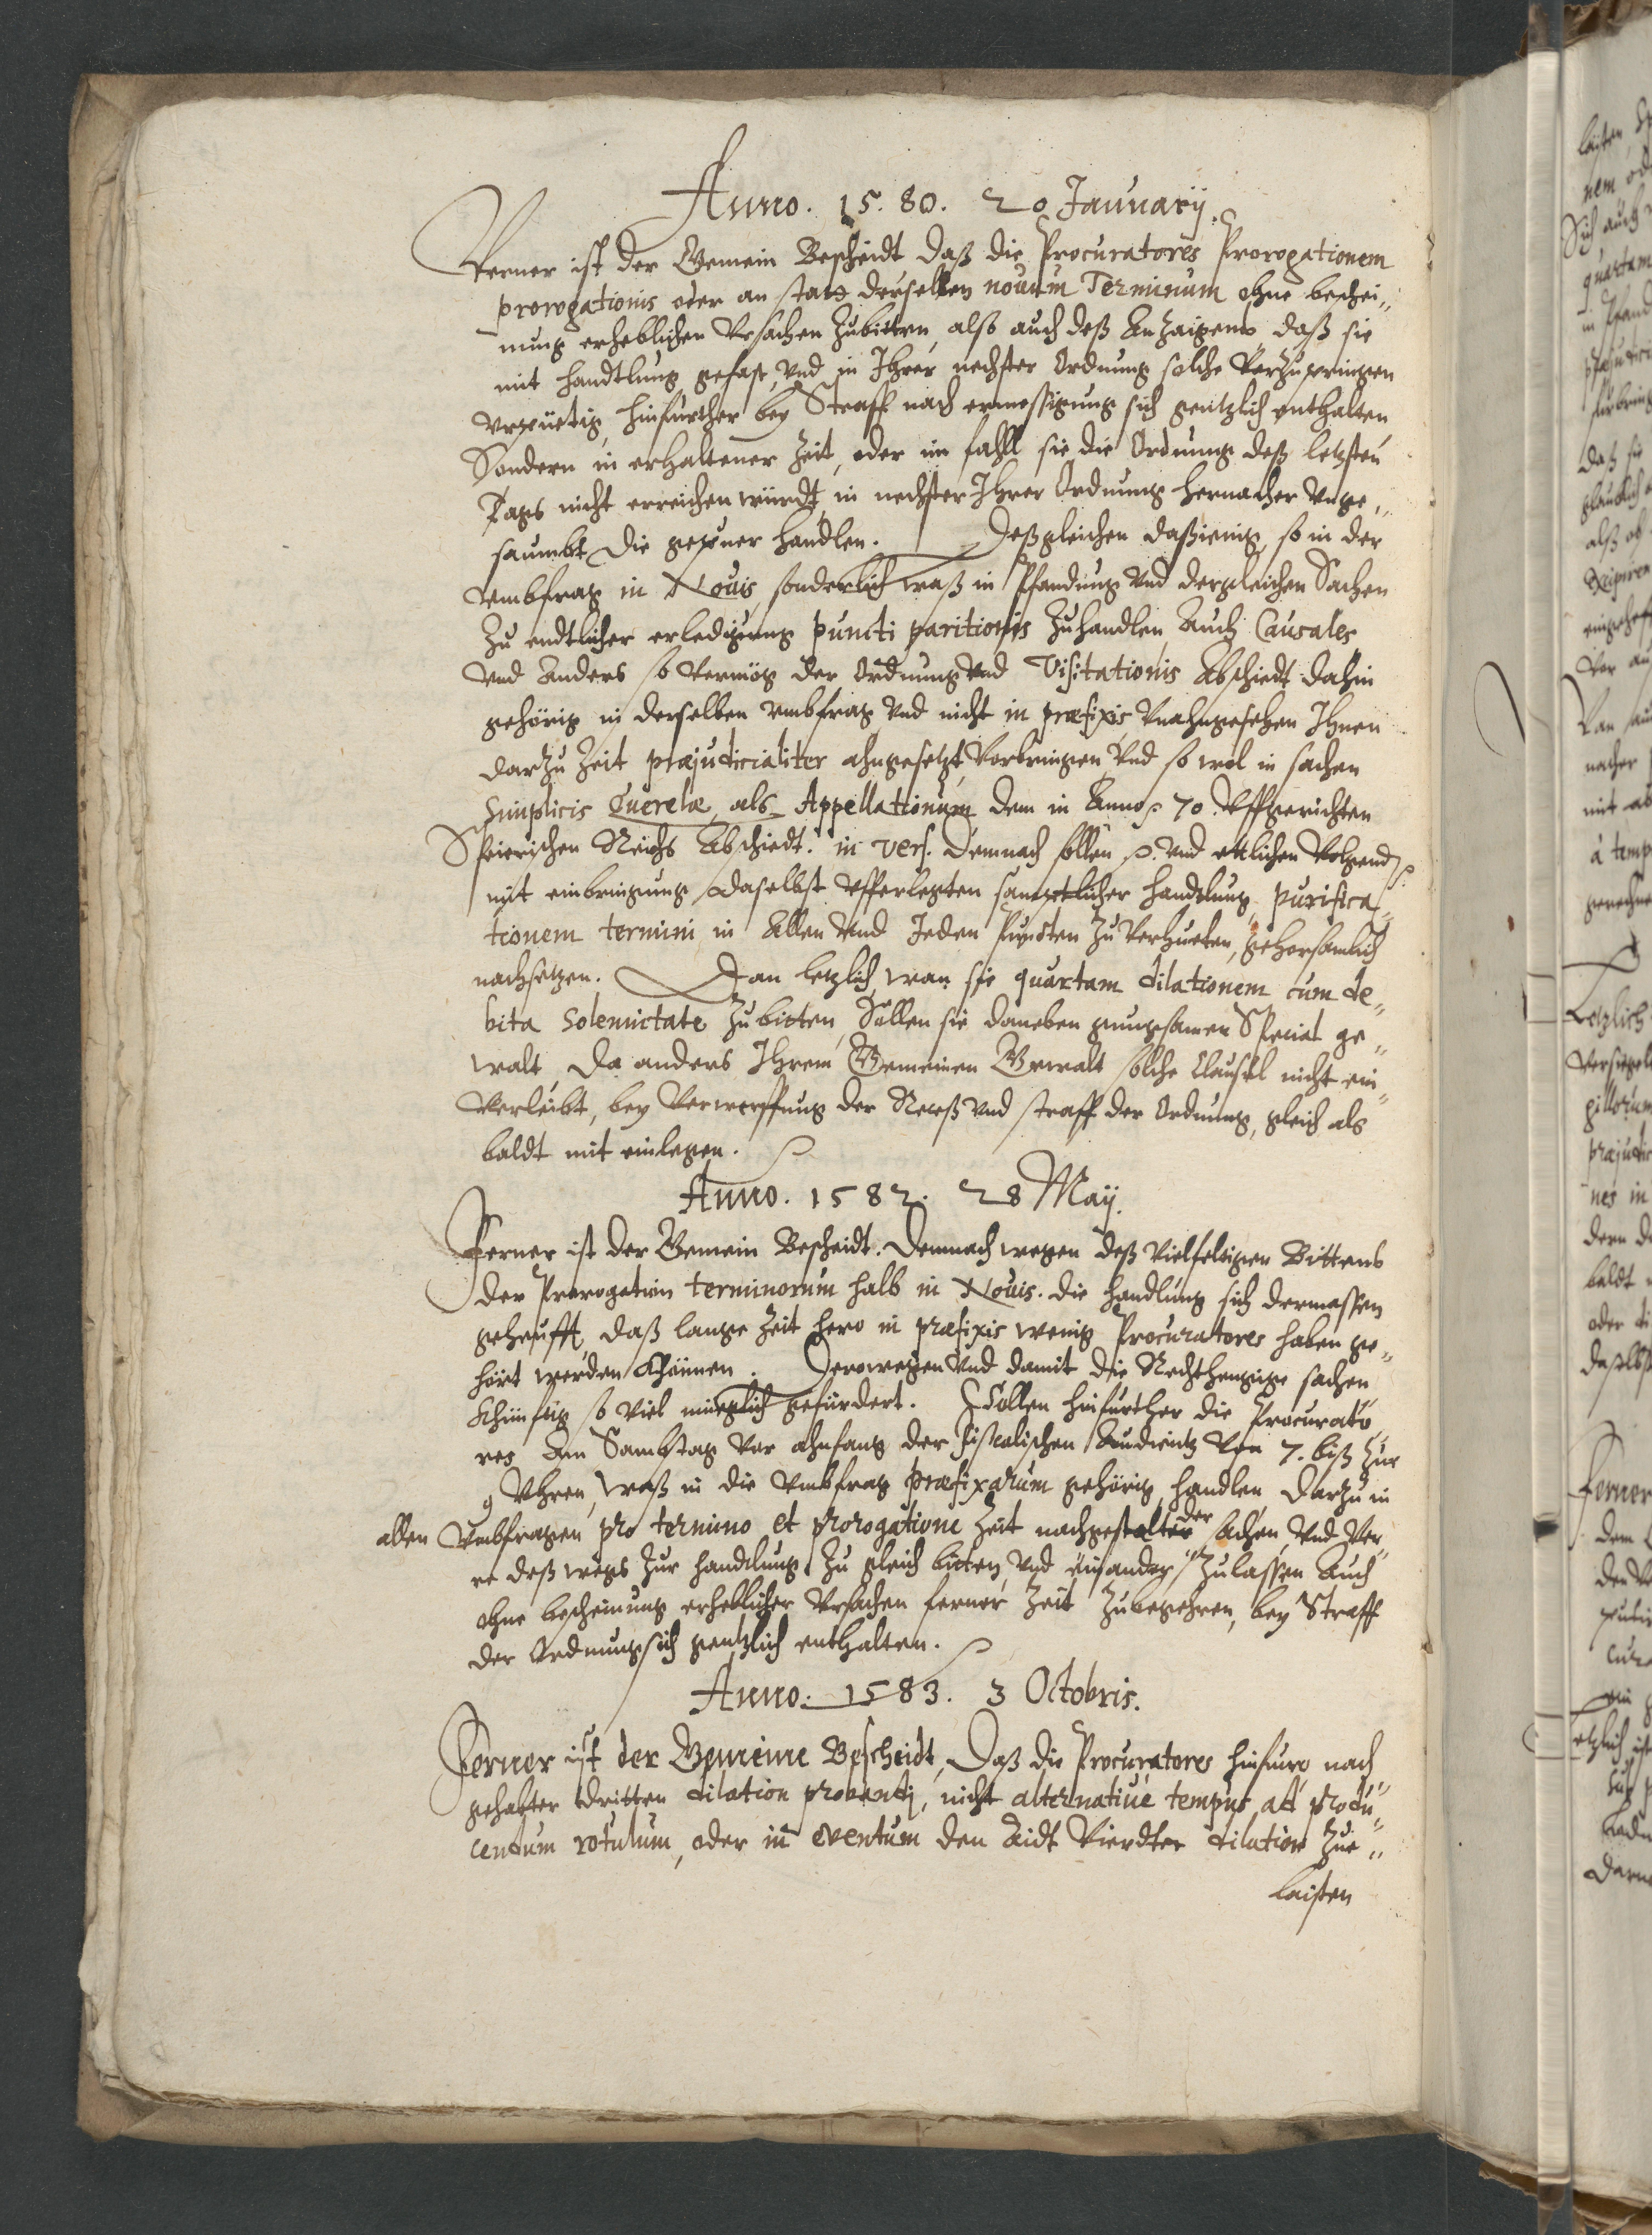 Anno. 15.80. 20 Januarij.
Ferner ist der Gemein Bescheidt daß die Procuratores Prorogationem
prorogationis oder an statt derselben nouum Terminum ohne beschei„
nung erheblichen Vrsachen Zubitten, alß auch deß Anzaigens daß sie
mit handtlung gefast, vnd in Ihrer nechster Ordnung solche Verzupringen
vrpüetig, hinfurther bey Straff nach ermessigung sich gentzlich enthalten
Sondern in erhaltener Zeit, oder im fahll sie die Ordnung deß letzsten
Tags nicht erreichen würdt, in nechster Ihrer Ordnung hernacher Vnge„
saumbt die gepuer handlen. Deßgleichen daßienig so in der
vmbfrag in Nouis sonderlich waß in Pfandung vnd dergleichen Sachen
Zu endtlicher erledigung puncti paritionis Zuhandlen Auch Causales
vnd Anders so Vermög der Ordnung vnd Visitationis Abschiedt dahin
gehörig in derselben vmbfrag vnd nicht in præfixis Vnahngesehen Ihnen
darzu Zeit præjudicialiter ahngesetzt, Vorbringen vnd so wol in sachen
Simplicis Querelæ, als Appellationum dem in Anno 70. Vffgerichten
Speierischen Reichs Abschiedt. in vers. Demnach sollen p. vnd ettlichen Volgend p.
mit einbringung daselbst Vfferlegten samptlicher handtlung, purifica„
tionem termini in Allen vnd Jeden Puncten Zu Verhueten, gehorsamlich
nachsetzen. Dan letzlich wan sie quartam dilationem cum de„
bita Solemnitate Zubitten, Sollen sie daneben gnugsamen Special ge„
walt da anders Ihrem Gemeinen Gewalt solche Clausel nicht ein„
Verleibt, bey Verwerffung der Receß vnd straff der Ordnung, gleich als
baldt mit einlegen.
Anno. 1582. 28 Maij.
Ferner ist der Gemein Bescheidt. Demnach wegen deß vielfeltigen Bittens
der Prorogation terminorum halb in Nouis. die handlung sich dermassen
geheufft, daß lange Zeit hero in præfixis wenig Procuratores haben ge„
hört werden khönnen. Derowegen vnd damit die Rechthengige sachen
Khünftig so viel müeglich gefürdert. Sollen hinfurther die Procurato„
res Am Sambstag vor ahnfang der fiscalischen Audientz von 7. biß Zur
9 Vhren, waß in die vmbfrag præfixarum gehörig, handlen, darzu in
allen Vmbfragen pro termino et prorogatione Zeit nachgestalter der sachen, vnd Ver„
re deß wegs Zur handlung Zu gleich bitten, vnd einander Zulassen Auch
ohne bescheinung erheblicher Vrsachen ferner Zeit Zubegehren, bey Straff
der Ordnung sich gentzlich enthalten.
Anno. 1583. 3 Octobris.
Ferner ist der Gemeine Bescheidt, Daß die Procuratores hinfuro nach
gehabter dritten dilation probandi, nicht alternatiuè tempus ad produ„
cendum rotulum, oder in eventum den Aidt Vierdter dilation Zue„
laisten